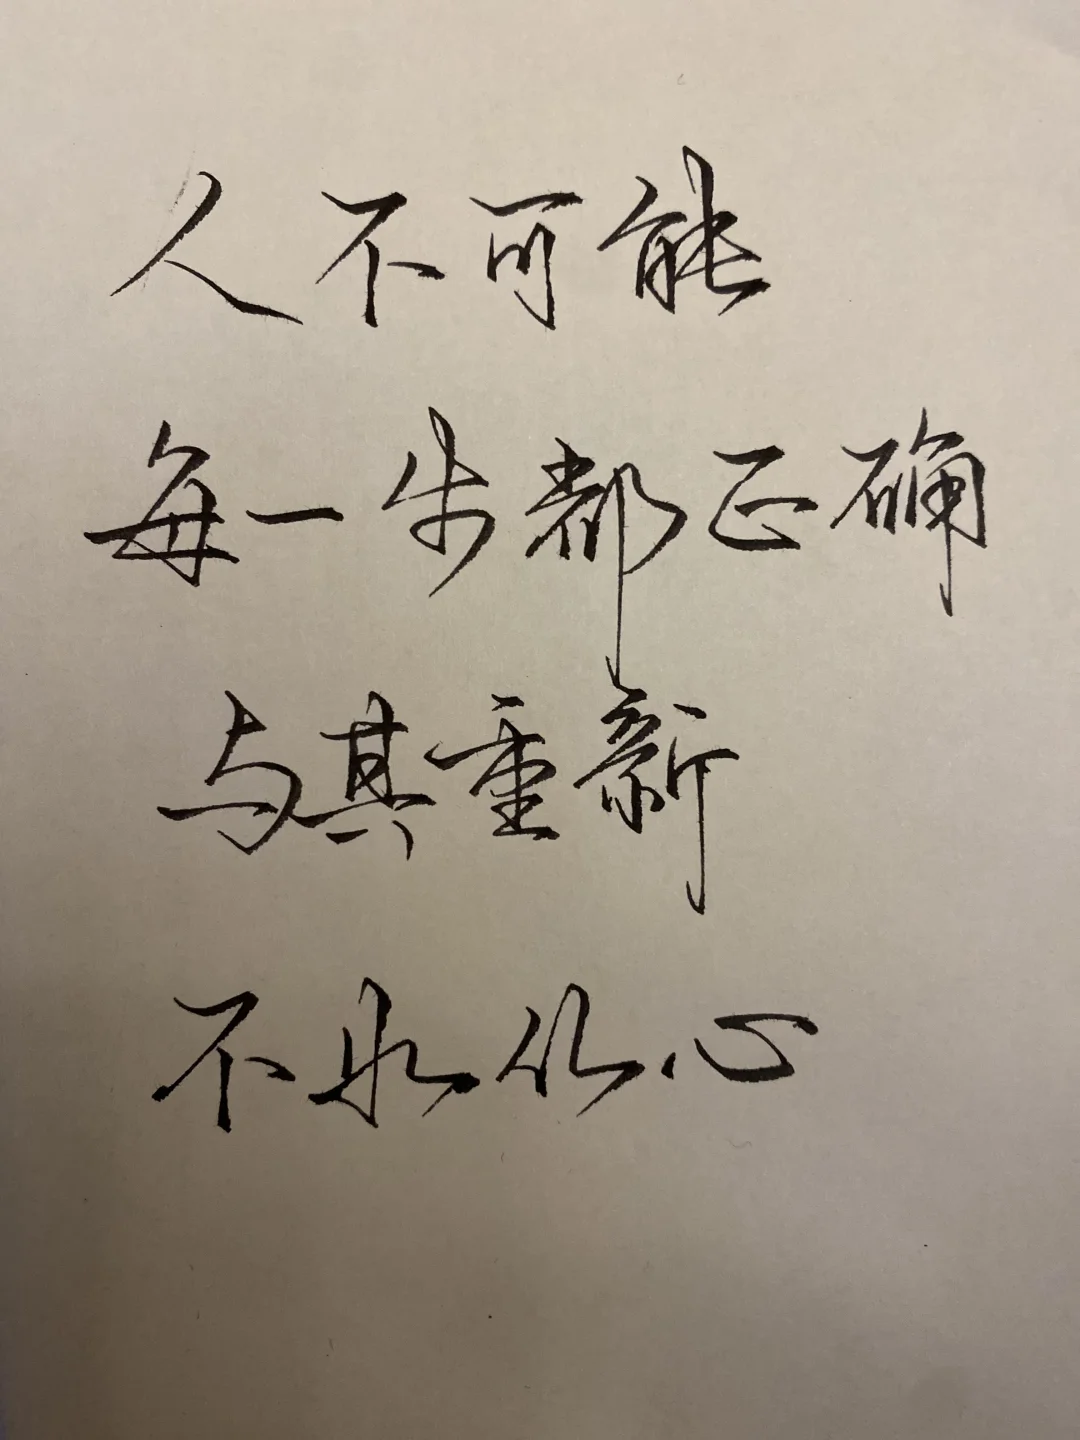 人不可能
每一步都正确
与其重新
不必从心